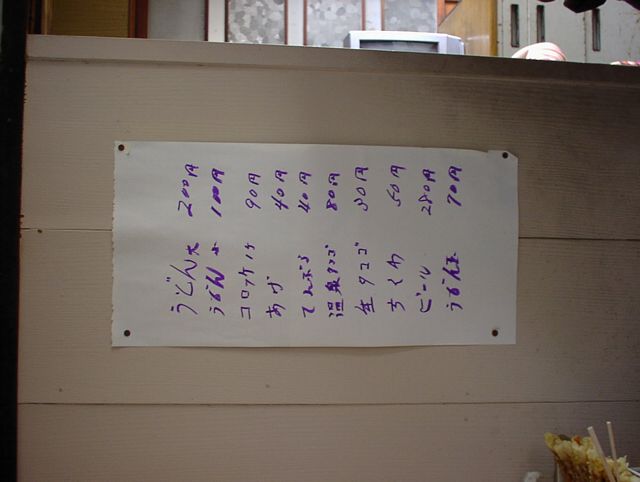 うどん大 200円
うどん小 100円
コロッケ 90円
あげ 40円
てんぷら 40円
温泉タマゴ 80円
生タマゴ 30円
ちくわ 50円
ビール 280円
うどん玉 70円